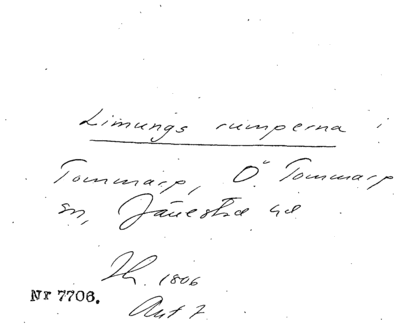 Limungs rumperna i
Tommarp, Ö. Tommarp
sn, Järrestad hd
Th. 1806
Nr 7706.
Akt 7